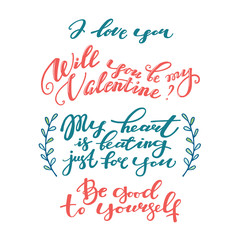 I love you
Will you be my
Valentine?
My heart
is beating
just for you
Be good
to yourself